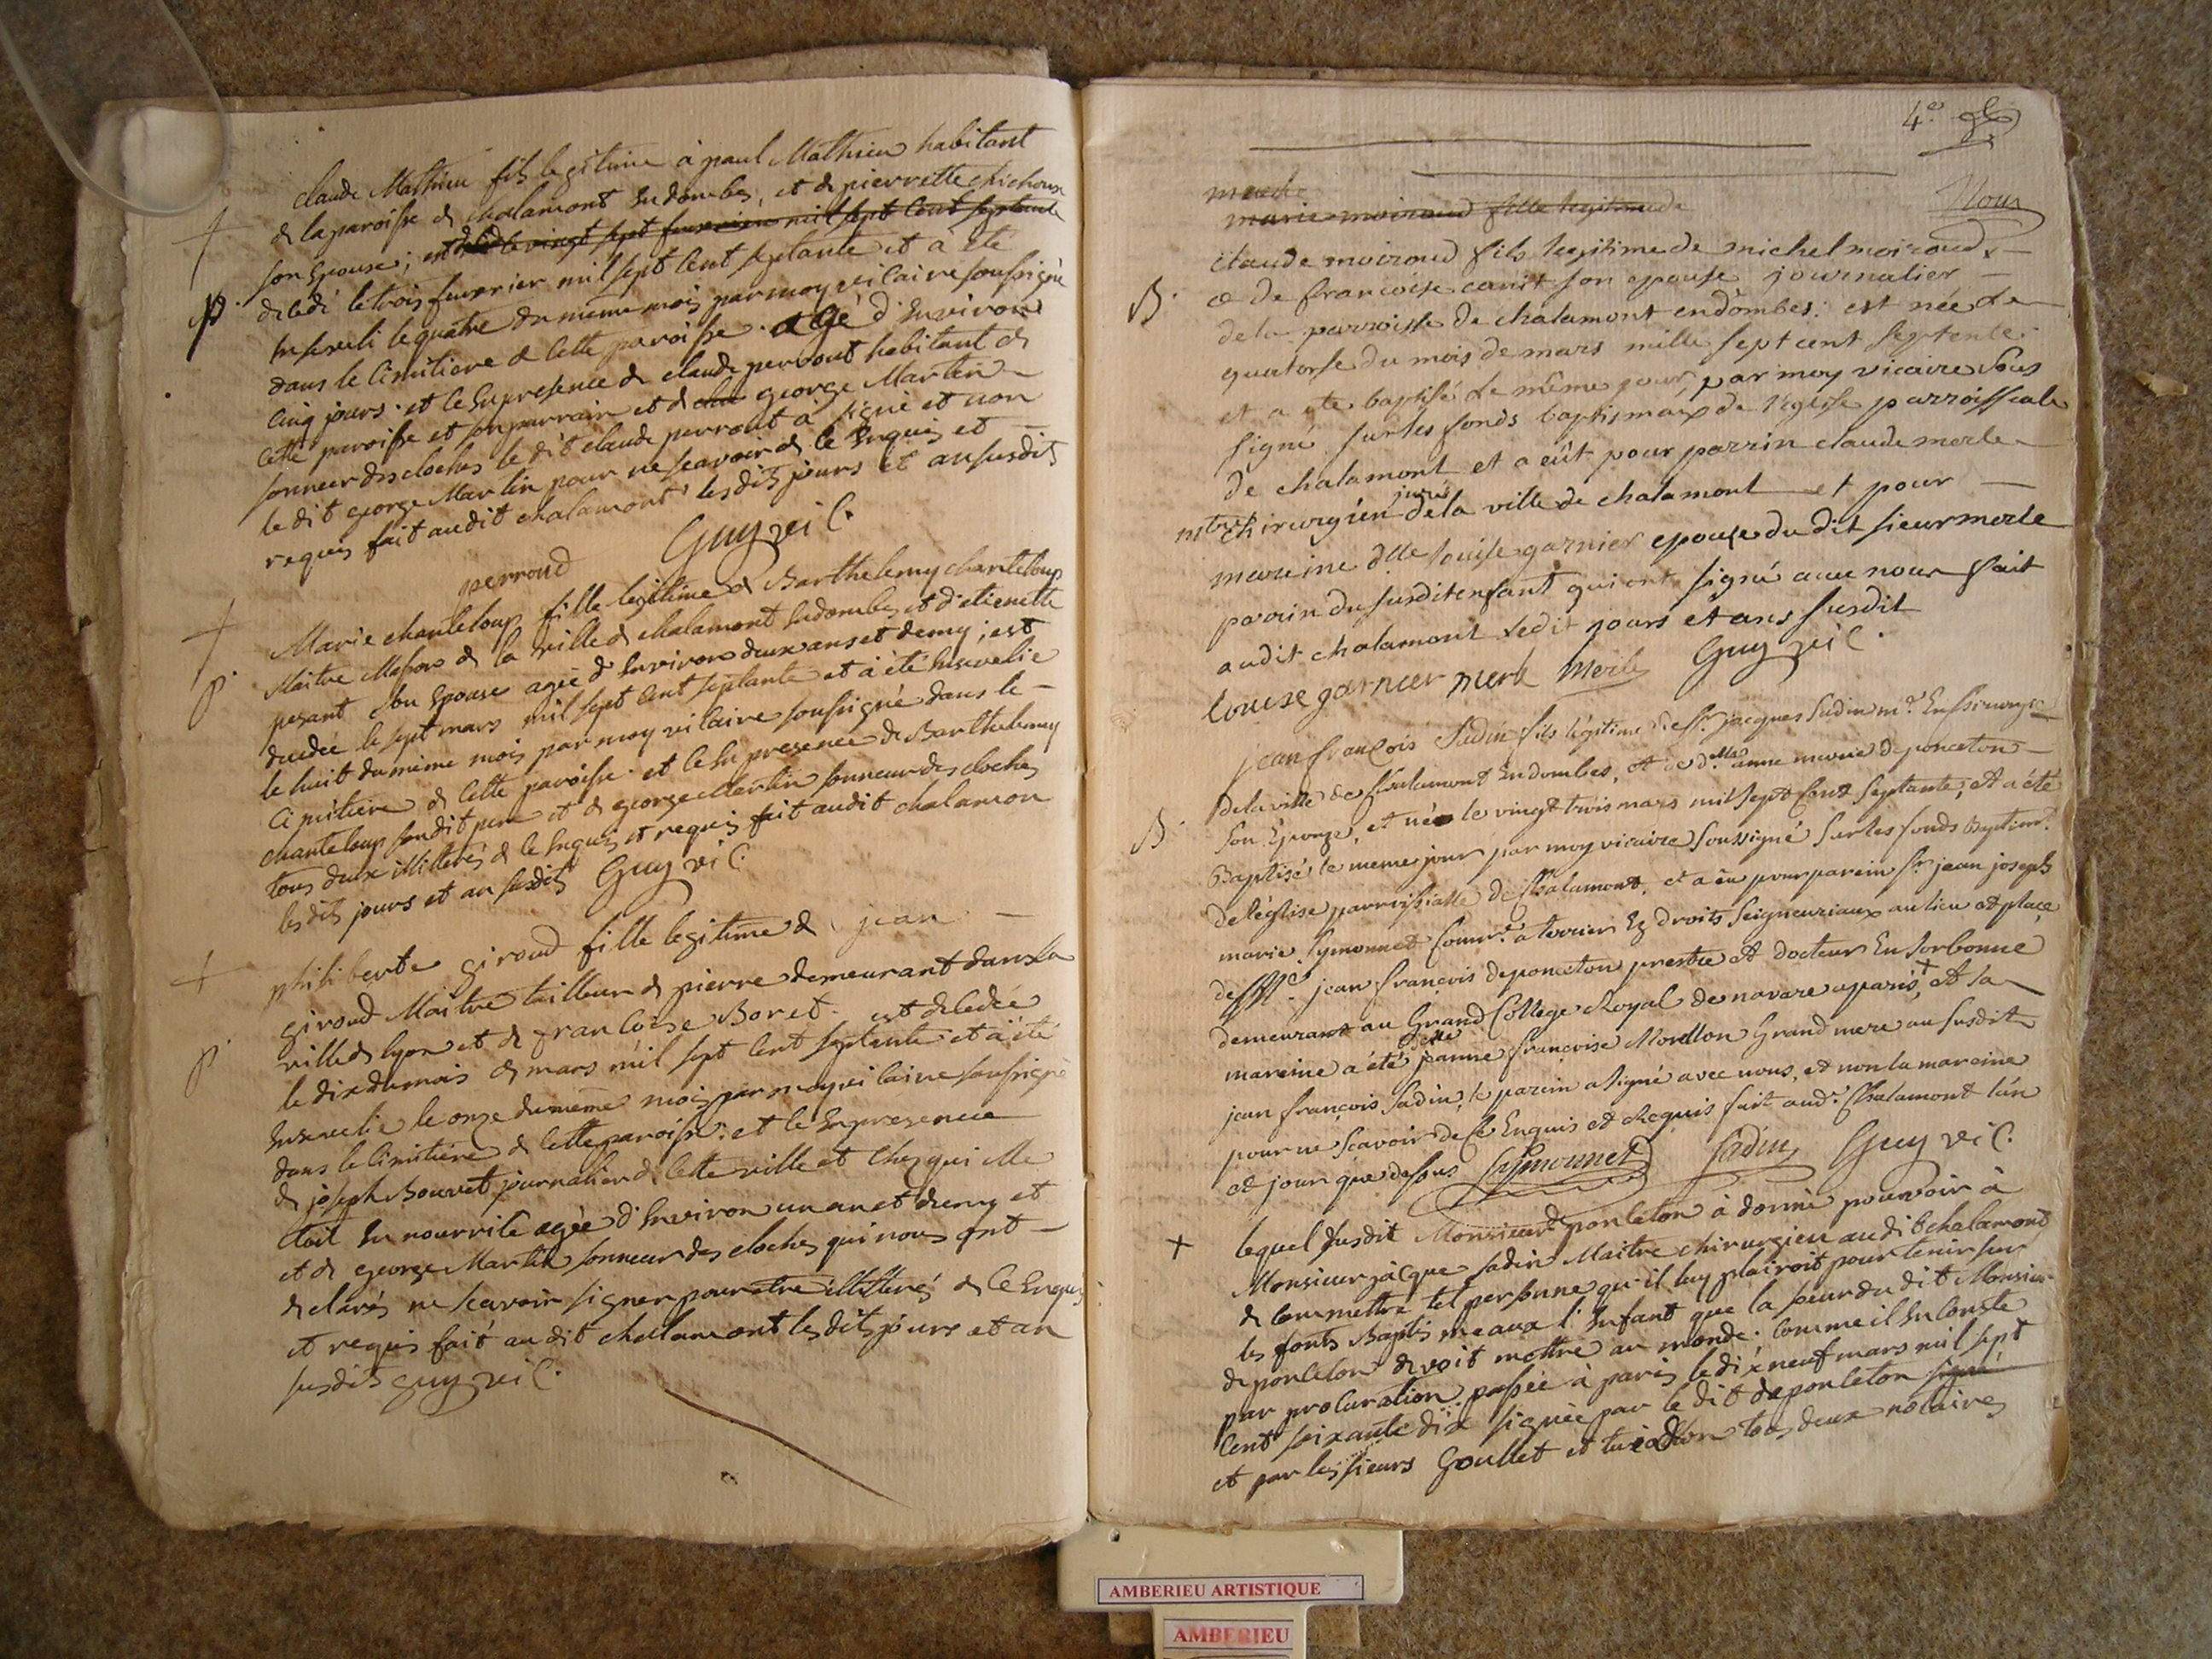 claude Mathieu fils legitime à paul Mathieu habitant
de la paroisse de chalamont en dombes, et de pierrette chichoux
son epouse; est decedé le vingt sept fevrier mil sept cent septante
p. decedé le trois fevrier mil sept cent septante et a été
enseveli le quatre du même mois par moy vicaire soussigné
dans le cimitiere de cette paroisse. agé d'environ
cinq jours. et ce en presence de claude perrout habitant de
cette paroisse et son parrain et de george Martin
sonneur des cloches le dit claude perrout a signé et non
le dit george Martin pour ne scavoir de ce enquis et
requis fait au dit chalamont les dits jours et an susdits
perroud Guy vic.
Marie chanteloup fille legitime de Barthelemy chanteloup
Maitre Masson de la ville de chalamont en dombes et d'etienette
p. pesant son epouse agée d'environ deux ans et demy; est
decedée le sept mars mil sept cent septante et a été ensevelie
le huit du même mois par moy vicaire soussigné dans le
cimitiere de cette paroisse. et ce en presence de Barthelemy
chanteloup son dit pere et de george Martin sonneur des cloches
tous deux illitterés de ce enquis et requis fait au dit chalamon
les dits jours et an susdits Guy vic.
philiberte giroud fille legitime de jean
giroud Maitre tailleur de pierre demeurant dans la
ville de lyon et de francoise Boret. est decedée
p. le dix du mois de mars mil sept cent septante et a été
ensevelie le onze du même mois par moy vicaire soussigné
dans le cimitiere de cette paroisse. et ce en presence
de joseph Bouvet journalier de cette ville et chez qui elle
etoit en nourrice agée d'environ un an et demy et
et de george Martin sonneur des cloches qui nous ont
declarés ne scavoir signer pour etre illitterés de ce enquis
et requis fait au dit chalamont les dits jours et an
susdits guy vic.
4.e
marie moiroud fille legitime de
Nous
claude moiroud fils legitime de michel moiroud
B. & de francoise canit son epouse journalier
de la parroisse de chalamont en dombes: est née le
quatorse du mois de mars mille sept cent septente
et a ete baptisé le même jour, par moy vicaire sous
signé sur les fonds baptismaux de l'eglise parroissiale
de chalamont et a eût pour parrin claude merle
mtre chirurgien juré de la ville de chalamont et pour
mareine dlle louise garnier epouse du dit sieur merle
parain du susdit enfant qui ont signé avec nous fait
au dit chalamont ledit jours et ans susdit
louise garnier merle Merle Guy vic.
jean francois Sadin fils légitime de sr. jacques Sadin me. En chirurgie
de la ville de Chalamont En dombes, et de dlle anne marie deponceton
B. Son Epouze, et née le vingt trois mars mil Sept Cent Septante, et a été
Baptisé le meme jour par moy vicaire Soussigné Sur les fonds Baptism.
de l'église parroissialle de Chalamont, et a eu pour parein sr. jean joseph
marie Symonnet Commre. a terrier Es droits Seigneuriaux au lieu et place
de Mre. jean françois deponceton prestre et docteur En Sorbonne
demeurant au Grand College Royal de navare a paris +, et la
mareine a été delle jeanne françoise Morellon Grand mere au susdit
jean françois Sadin, le parein a signé avec nous, et non la mareine
pour ne Scavoir de ce Enquis et Requis fait aud. Chalamont l'an
et jour que dessus Symonnet Sadin Guy vic.
+ lequel susdit Monsieur deponceton à donné pouvoir à
Monsieur jâcque sadin Maitre chirurgien au dit chalamont
de commettre tel personne qu'il luy plairoit pour tenir sur
les fonts Baptismeaux l'enfant que la soeur du dit Monsieur
deponceton devoit mettre au monde. comme il en conste
par procuration passée à paris le dix neuf mars mil sept
cent soixante dix signée par le dit deponceton signé
et par les sieurs Goullet et tous deux notaires
AMBERIEU ARTISTIQUE
AMBERIEU